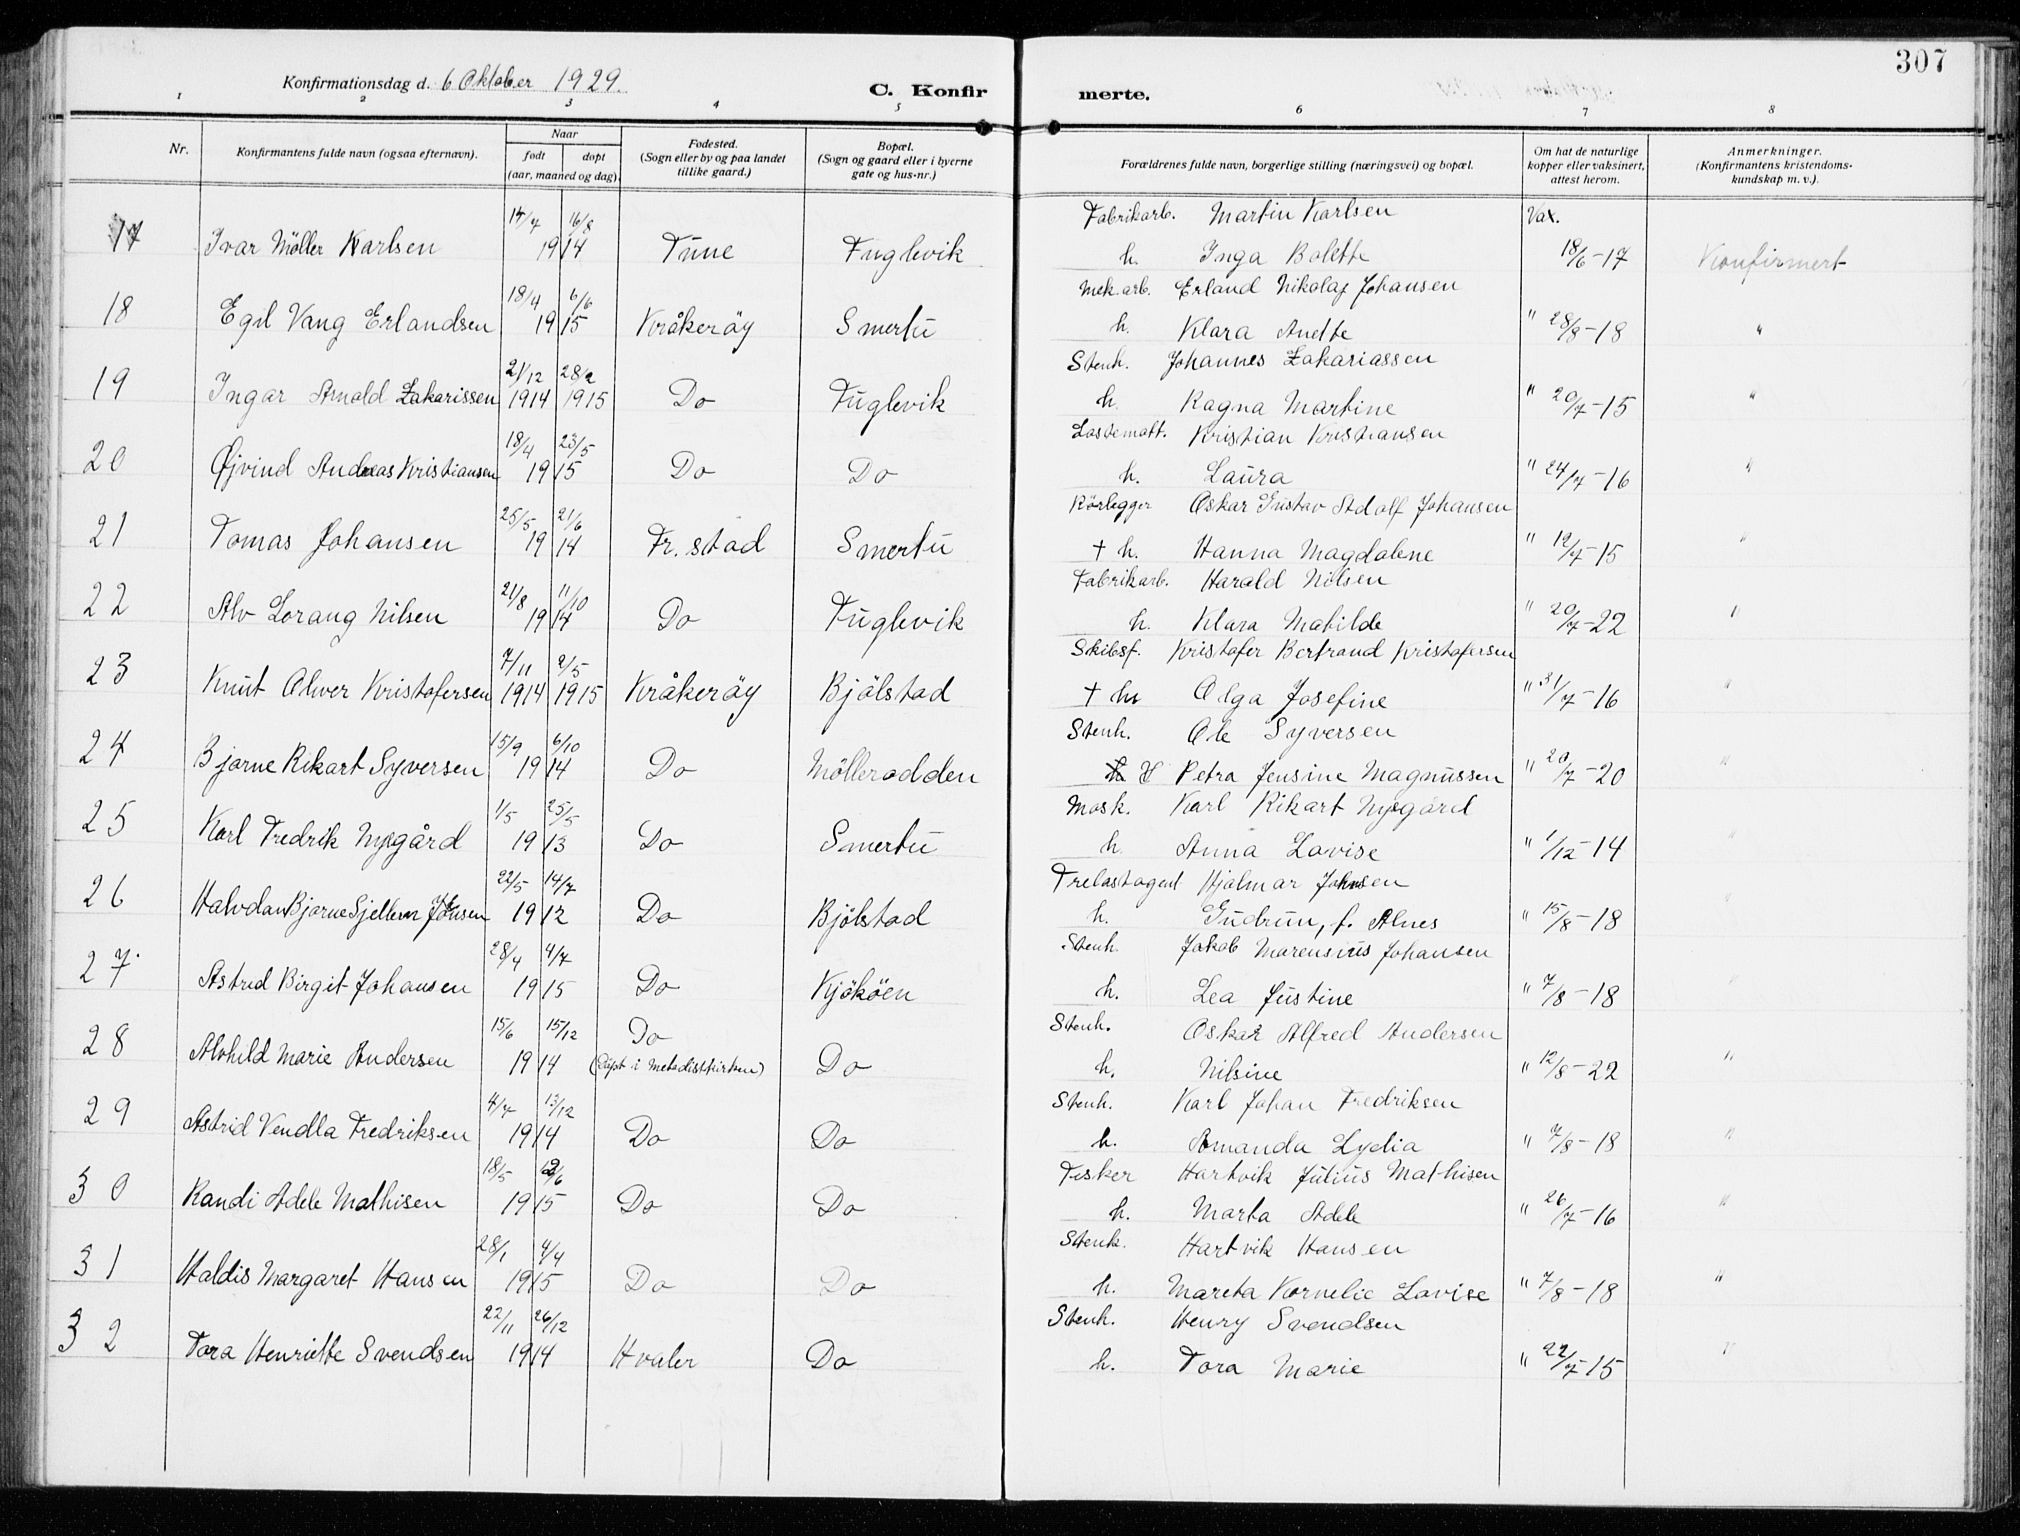 307
Konfirmationsdag d. 6 Oktober 1929.
C. Konfirmerte.
1 2 3 4 5 6 7 8
Nr.
Konfirmantens fulde navn (ogsaa efternavn).
Naar
født
døpt
(aar, maaned og dag).
Fødested.
(Sogn eller by og paa landet
tillike gaard.)
Bopæl.
(Sogn og gaard eller i byerne
gate og hus-nr.)
Forældrenes fulde navn, borgerlige stilling (næringsvei) og bopæl.
Om hat de naturlige
kopper eller vaksinert,
attest herom.
Anmerkninger.
(Konfirmantens kristendoms-
kundskap m. v.).
14/7 16/8 Fabrikarb. Martin Karlsen Vax.
17 Ivar Möller Karlsen 1914 Tune Fuglevik h. Inga Bolette 18/6-17 Konfirmert
18/4 6/6 Mek.arb. Erland Nikolaj Johansen
18 Egil Vang Erlandsen 1915 Kråkeröy Smertu h. Klara Anette " 28/8-18 "
21/12 28/2 Stenh. Johannes Zakariassen
19 Ingar Arnold Zakarissen 1914 1915 Do Fuglevik h. Ragna Martine " 20/7-15 "
18/4 23/5 Lastematt. Kristian Kristiansen
20 Øjvind Andreas Kristiansen 1915 Do Do h. Laura " 24/7-16 "
25/5 21/6 Rörlegger Oskar Gustav Adolf Johansen
21 Tomas Johansen 1914 Fr.stad Smertu + h. Hanna Magdalene " 12/7-15 "
21/8 11/10 Fabrikarb. Harald Nilsen
22 Alv Lorang Nilsen 1914 Do Fuglevik h. Klara Matilde " 20/7-22 "
7/11 2/5 Skibsf. Kristofer Bertrand Kristofersen
23 Knut Oliver Kristofersen 1914 1915 Kråkeröy Bjölstad + h Olga Josefine " 31/7-16 "
15/9 6/10 Stenh. Ole Syversen
24 Bjarne Rikart Syversen 1914 Do Mölleradden Petra Jensine Magnussen " 20/7-20 "
1/5 25/5 Mask. Karl Rikart Nygård
25 Karl Fredrik Nygård 1913 Do Smertu h. Anna Lovise " 1/12-14 "
22/5 14/7 Trelastagent Hjalmar Johnsen
26 Halvdan Bjarne Johnsen 1912 Do Bjölstad h. Gudrun, f. Alnes " 15/8-18 "
28/4 4/7 Stenh. Jakob Marensius Johansen
27 Astrid Birgit Johansen 1915 Do Kjököen h. Lea Justine " 7/8-18 "
15/6 15/12 Do Stenh. Oskar Alfred Andersen
28 Alvhild Marie Andersen 1914 (Döpt i Metodistkirken) Do h. Nilsine " 12/8-22 "
4/7 13/12 Stenh. Karl Johan Fredriksen
29 Astrid Vendla Fredriksen 1914 Do Do h. Amanda Lydia " 7/8-18 "
18/5 Fisker Hartvik Julius Mathisen
30 Randi Adele Mathisen 1915 Do Do h. Marta Adele " 26/7-16 "
28/1 4/4 Stenh. Hartvik Hansen
31 Haldis Margaret Hansen 1915 Do Do h. Mareta Kornelie Lovise " 7/8-18 "
22/11 26/12 Stenh. Henry Svendsen
32 Tora Henriette Svendsen 1914 Hvaler Do h. Tora Marie " 22/7-15 "